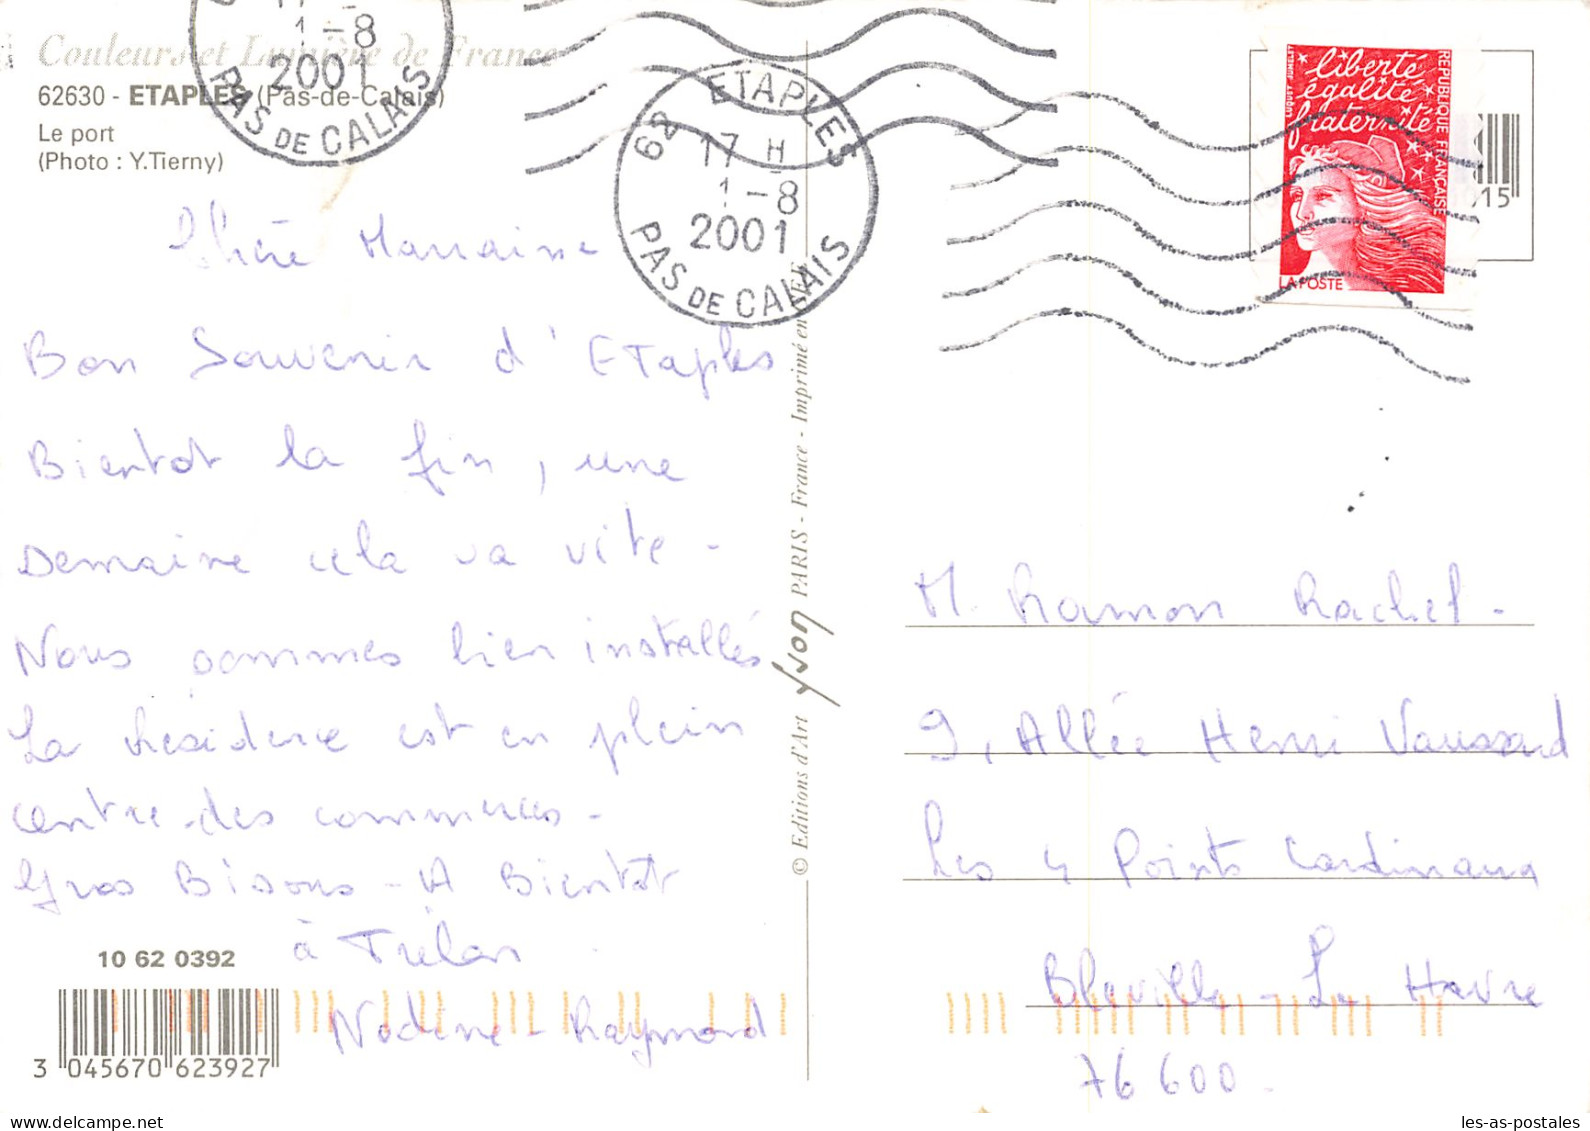 Couleurs et Lumière de France
62630 - ETAPLES (Pas-de-Calais)
Le port
(Photo : Y.Tierny)
17
1-8
2001
PAS DE CALAIS
62 ETAPLES
17 H
1-8
2001
PAS DE CALAIS
liberté
égalité
fraternité
RÉPUBLIQUE FRANÇAISE
LUQUET JUMELET
LA POSTE
15
Chère Marraine
Bon Souvenir d'Etaples
Bientot la fin, une
Semaine cela va vite -
Nous sommes bien installés
La Résidence est en plein
centre des commerces -
Gros Bisous - A Bientot
à Trélan
Nadine - Raymond
© Editions d'Art yvon PARIS - France - Imprimé en CEE
M Ramon Rachel -
9, Allée Henri Vaussard
Les 4 Points Cardinaux
Bleville - Le Havre
76 600 -
10 62 0392
3 045670 623927
les-as-postales